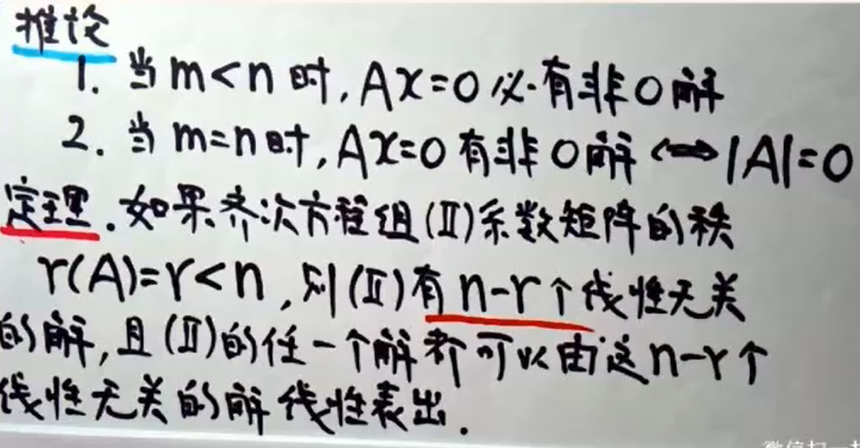 推论
1. 当 m<n 时, Ax=0 必有非0解
2. 当 m=n 时, Ax=0 有非0解 ⟺ |A|=0
定理. 如果齐次方程组(Ⅱ)系数矩阵的秩
r(A)=r<n, 则(Ⅱ)有 n-r 个线性无关
的解, 且(Ⅱ)的任一个解都可以由这 n-r 个
线性无关的解线性表出.